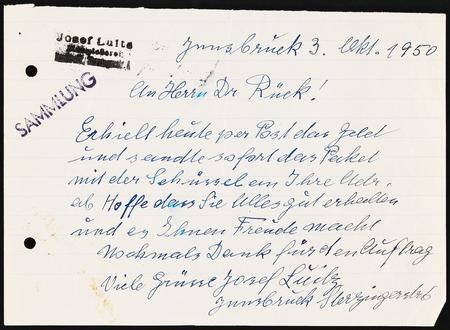 Josef Luitz
SAMMLUNG
Innsbruck 3. Okt. 1950
An Herrn Dr Rück!
Erhielt heute per Post das Geld
und sandte sofort das Paket
mit der Schüssel an Ihre Adr.
ab Hoffe dass Sie Alles gut erhalten
und es Ihnen Freude macht
Nochmals Dank für den Auftrag
Viele Grüsse Josef Luitz
Innsbruck